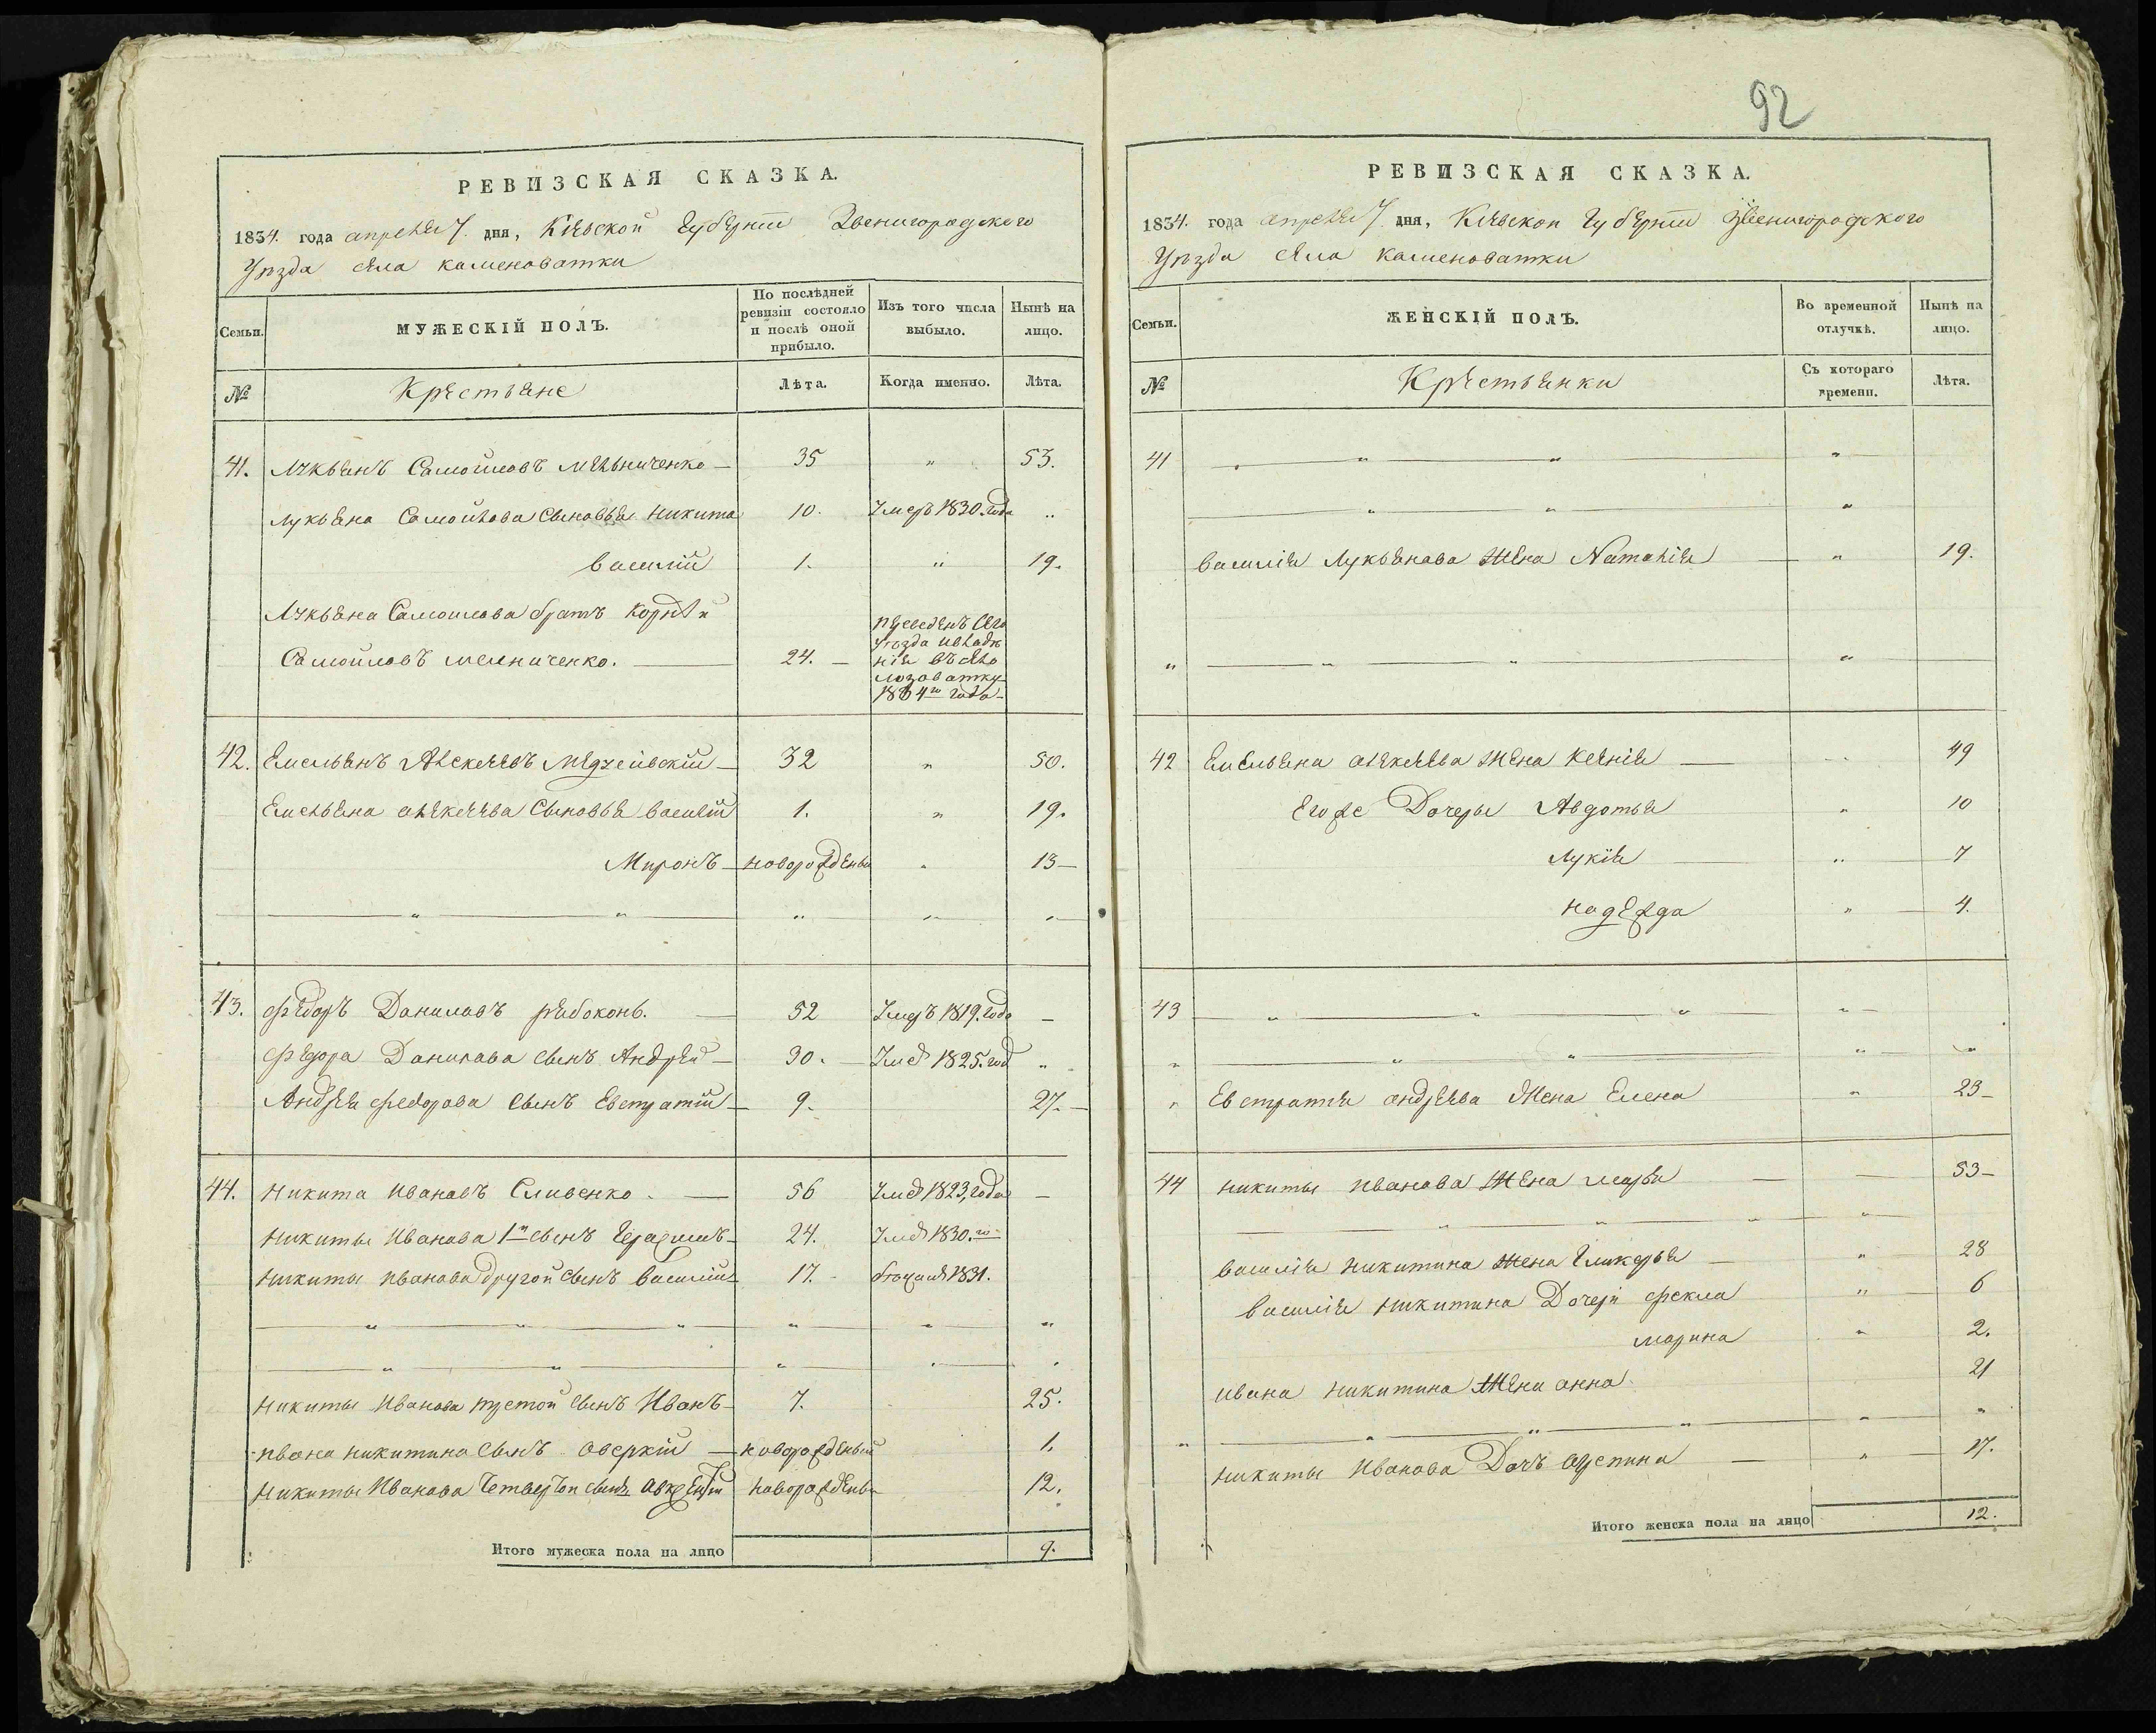 РЕВИЗСКАЯ СКАЗКА.
1834. года апреля 7. дня, Кіевской Губерніи Звенигородского
Уѣзда села каменоватки
Семьи.
МУЖЕСКІЙ ПОЛЪ.
По послѣдней ревизіи состояло и послѣ оной прибыло.
Изъ того числа выбыло.
Нынѣ на лицо.
№
Крестьяне
Лѣта.
Когда именно.
Лѣта.
41. Лукьянъ Самойловъ Мельниченко — 35 " 53.
Лукьяна Самойлова сыновья Никита 10. Умеръ 1830. года "
василій 1. " 19.
Лукьяна Самоилова братъ Корнѣй
Самойловъ мельниченко. — 24. —
Уѣзда
въ село
лозоватку
1834го года —
42. Емельянъ Алексеевъ — 32 " 50.
Емельяна алексеева сыновья василій 1. " 19.
Миронъ — новорожденъ " 13 —
— " — " — " " "
43. Федоръ Даниловъ рябоконь. — 52 Умеръ 1819. года —
Федора Данилова сынъ Андрей — 30. — Умеръ 1825. год "
Андрея Федорова сынъ Евстратій — 9. 27. —
44. Никита Ивановъ Сливенко. — 56 Умеръ 1823, года —
Никиты Иванова 1й сынъ Герасимъ — 24. Умеръ 1830. го
Никиты Иванова другой сынъ василій 17. 1831.
— " — " — " — " " "
— " — " — " " "
Никиты Иванова третой сынъ Иванъ — 7. 25.
Ивана Никитина сынъ Оверкій — новорожденый 1.
Никиты Иванова Четвертой сынъ новорожденъ 12.
Итого мужеска пола на лицо 9.
92
РЕВИЗСКАЯ СКАЗКА.
1834. года апреля 7 дня, Кіевской Губерніи Звенигородского
Уѣзда села Каменоватки
Семьи.
ЖЕНСКІЙ ПОЛЪ.
Во временной отлучкѣ.
Нынѣ на лицо.
№
Крестьянки
Съ котораго времени.
Лѣта.
41 " — " — " — "
— " — " — "
василія Лукьянова жена Наталія — " 19.
" — " — " — "
42 Емельяна алексеева жена Ксенія — " 49
Егоже Дочеры Авдотья " 10
Лукія — " — 7
надежда " — 4.
43 — " — " — " — "
" — " — " — " "
" Евстратія андреева жена Елена " 23 —
44 Никиты Иванова жена марья — — 53 —
— " — " — " — "
василія Никитина жена Гликерья — " 28
василія Никитина Дочери фекла " 6
марина " 2.
Ивана Никитина жена анна 21
" — " — " — " — " "
Никиты Иванова Дочь — " — 17.
Итого женска пола на лицо 12.